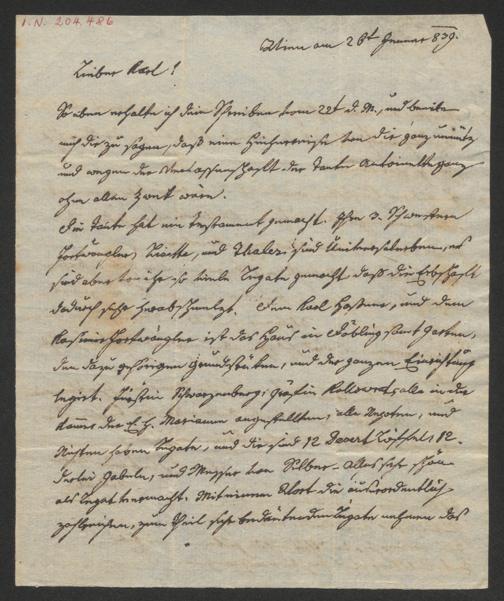 I.N. 204.486
Wien am 26t Jenner 839.
Lieber Karl!
So eben erhalte ich dein Schreiben vom 22t d. M., und beeile
mich dir zu sagen, daß eine Hieherreise von dir ganz unnütz
und wegen der Verlassenschaft der Tante Antoinette ganz
ohne allen Zweck wäre.
Die Tante hat ein Testament gemacht. Ihre 3. Schwestern
und Thaler sind Universalerben, es
sind aber von ihr so viele Legate gemacht daß die Erbschaft
dadurch sehr herabschmelzt. Dem Karl und dem
ist das Haus in Döbling samt Garten,
den dazu gehörigen Grundstücken, und der ganzen Einrichtung
legirt. Fürstin Schwarzenberg, Gräfin Kollowrat, alle in der
Kammer der E. H. Marianne angestellten, alle Nepoten, und
Nichten haben Legate, und die sind 12 Desert Löffel, 12.
derlei Gabeln, und Messer von Silber. Alles sehr schön
als Legat vermacht. Mit einem Wort die außerordentlich
zahlreichen, zum Theil sehr bedeutenden Legate nehmen das